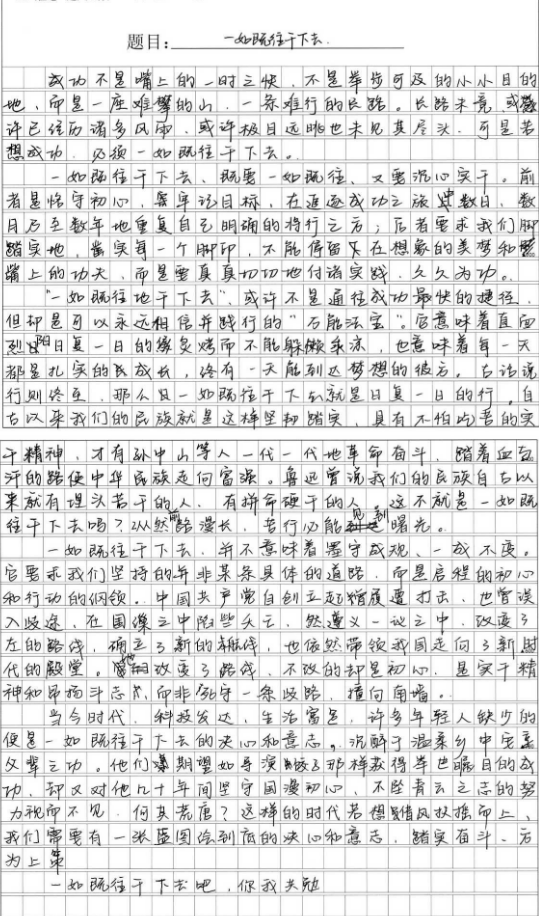 题目: 一如既往干下去.
成功不是嘴上的一时之快,不是举步可及的小小目的
地,而是一座难攀的山,一条难行的长路。长路未竟,或
许已经历诸多风雨,或许极目远眺也未见其尽头,可是若
想成功,必须一如既往干下去。
一如既往干下去,既要一如既往,又要沉心实干。前
者是恪守初心,牢记目标,在追逐成功之旅中数日、数
月乃至数年地重复自己明确的将行之方;后者要求我们脚
踏实地,凿实每一个脚印,不能停留下在想象的美梦和
嘴上的功夫,而是要真真切切地付诸实践,久久为功。
"一如既往地干下去",或许不是通往成功最快的捷径,
但却是可以永远相信并践行的"万能法宝"。它意味着直面
烈阳日复一日的炙烤而不能躲懒乘凉,也意味着每一天
都是扎实的成长,终有一天能到达梦想的彼方。古话说
行则终至,那么日一如既往干下去就是日复一日的行。自
古以来我们的民族就是这样坚韧踏实,具有不怕吃苦的实
干精神,才有孙中山等人一代一代地革命奋斗,踏着血与
汗的路使中华民族走向富强。鲁迅曾说我们的民族自古以
来就有埋头苦干的人,有拼命硬干的人,这不就是一如既
往干下去吗?纵然前路漫长,苦行必能见到曙光。
一如既往干下去,并不意味着墨守成规,一成不变。
它要求我们坚持的并非某条具体的道路,而是启程的初心
和行动的纲领。中国共产党自创立起屡遭打击,也曾误
入歧途,在国难之中险些夭亡,然遵义一议之中,改变了
左的路线,确立了新的航线,也依然带领我国走向了新时
代的殿堂。他们改变了路线,不改的却是初心,是实干精
神和昂扬斗志,而非死守一条歧路,撞向南墙。
当今时代,科技发达,生活富足,许多年轻人缺少的
便是一如既往干下去的决心和意志。沉醉于温柔乡中宅享
父辈之功。他们期望如导演饺子那样获得举世瞩目的成
功,却又对他几十年间坚守国漫初心,不坠青云之志的努
力视而不见,何其荒唐?这样的时代若想借风扶摇而上,
我们需要有一张蓝图绘到底的决心和意志,踏实奋斗,方
为上策
一如既往干下去吧,你我共勉